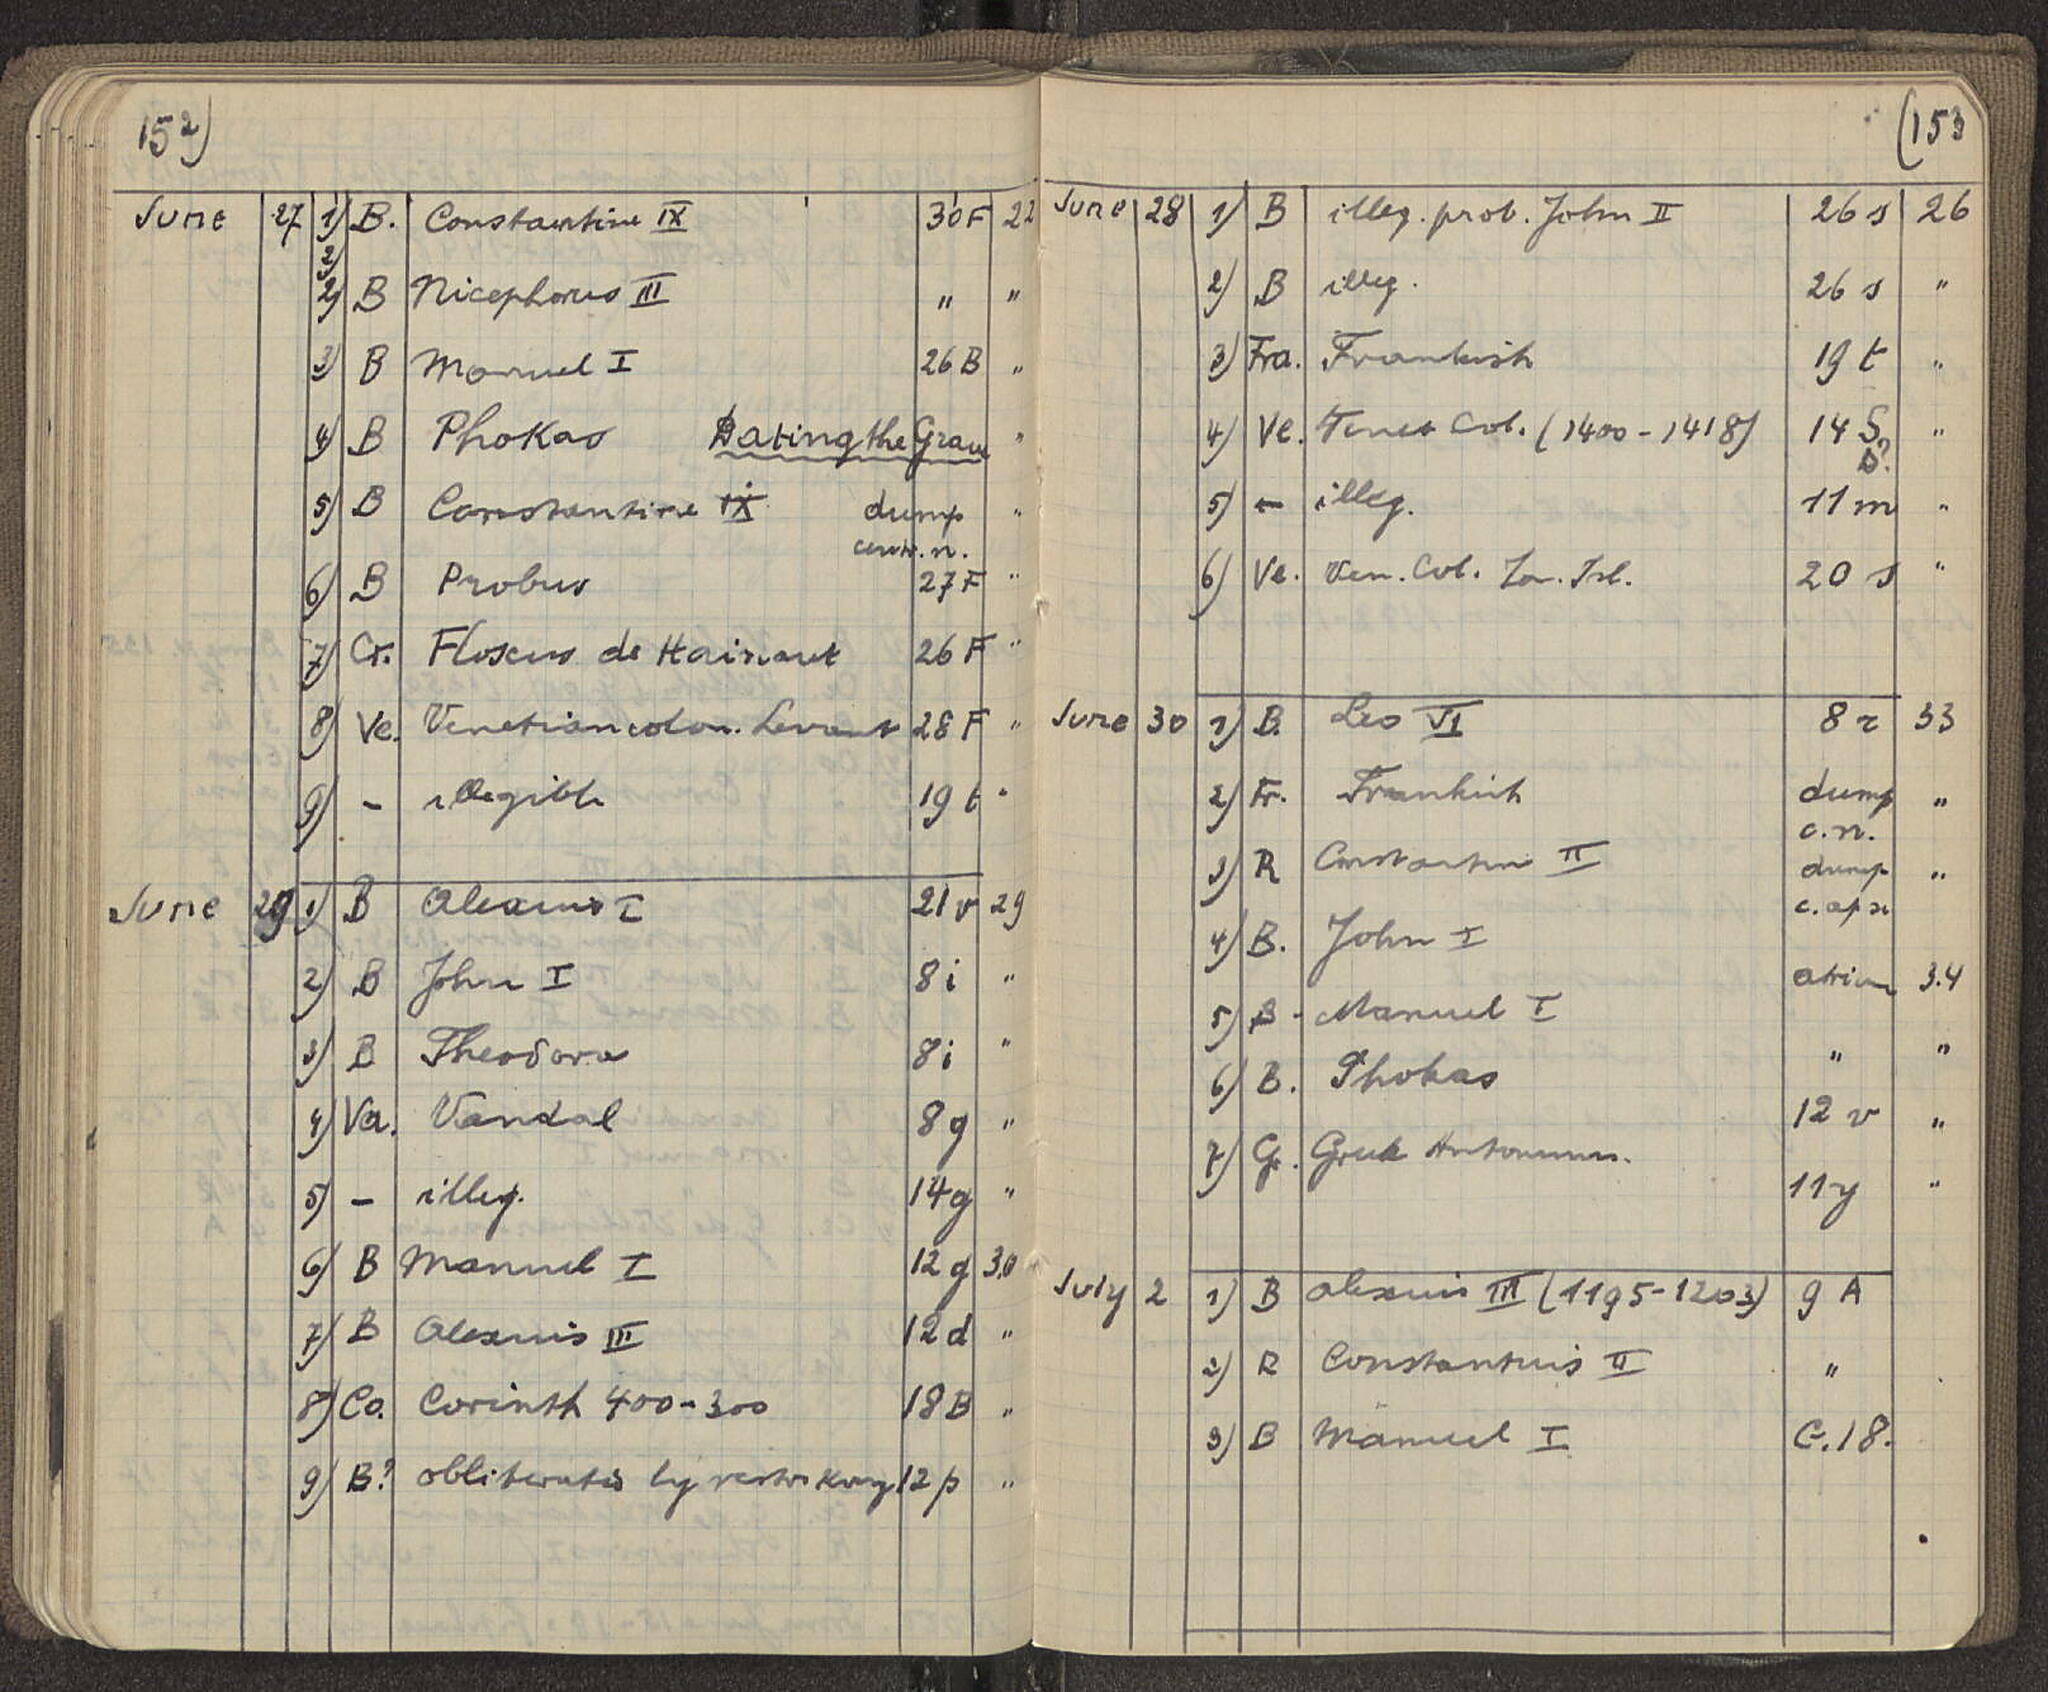 152)
June 27 1) B. Constantine IX 30 F 22
2)
2) B Nicephorus III " "
3) B Manuel I 26 B "
4) B Phokas Dating the Grave "
5) B Constantine IX dump "
centr. n.
6) B Probus 27 F "
7) Cr. Floscus de Hainaut 26 F "
8) Ve. Venetian colon. Levant 28 F "
9) - illegible 19 t "
June 29 1) B Alexius I 21 v 29
2) B John I 8 i "
3) B Theodora 8 i "
4) Va. Vandal 8 g "
5) - illeg. 14 g "
6) B Manuel I 12 g 30
7) B Alexuis III 12 d "
8) Co. Corinth 400-300 18 B "
9) B? obliterated by 12 p "
(153
June 28 1) B illeg. prob. John II 26 s 26
2) B illeg. 26 s "
3) Fra. Frankish 19 t "
4) Ve. Venet Col. (1400-1418) 14 S "
5) - illeg. 11 m "
6) Ve. Ven. Col. Ion. Isl. 20 s "
June 30 1) B. Leo VI 8 r 33
2) Fr. Frankish dump "
c. n.
3) R Constantin II dump "
c. aps
4) B. John I
atrium 34
5) B - Manuel I
" "
6) B. Phokas
12 v "
7) Gr. Greek Antonin.
11 y "
July 2 1) B Alexuis III (1195-1203) 9 A
2) R Constantuis II "
3) B Manuel I C. 18.